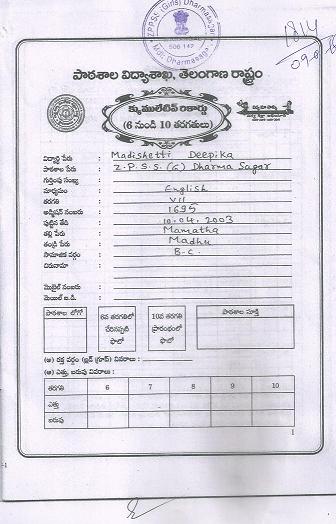 ZPPSS (Girls) Dharmasagar
506 142
Mdl: Dharmasagar
1814
పాఠశాల విద్యాశాఖ, తెలంగాణ రాష్ట్రం
క్యుములేటివ్ రికార్డు
(6 నుండి 10 తరగతులు)
విద్యార్థి పేరు : Madishetti Deepika
పాఠశాల పేరు : Z.P.S.S.(G) Dharma Sagar
గుర్తింపు సంఖ్య :
మాధ్యమం : English
తరగతి : VII
అడ్మిషన్ నంబరు : 1695
పుట్టిన తేదీ : 10.04.2003
తల్లి పేరు : Mamatha
తండ్రి పేరు : Madhu
సామాజిక వర్గం : B.C.
చిరునామా :
మొబైల్ నంబరు :
మెయిల్ ఐ.డి. :
పాఠశాల లోగో
6వ తరగతిలో చేరినప్పటి ఫొటో
10వ తరగతి ప్రారంభంలో ఫొటో
పాఠశాల సూక్తి
(అ) రక్త వర్గం (బ్లడ్ గ్రూప్) వివరాలు :
(ఆ) ఎత్తు, బరువు వివరాలు :
తరగతి 6 7 8 9 10
ఎత్తు
బరువు
1